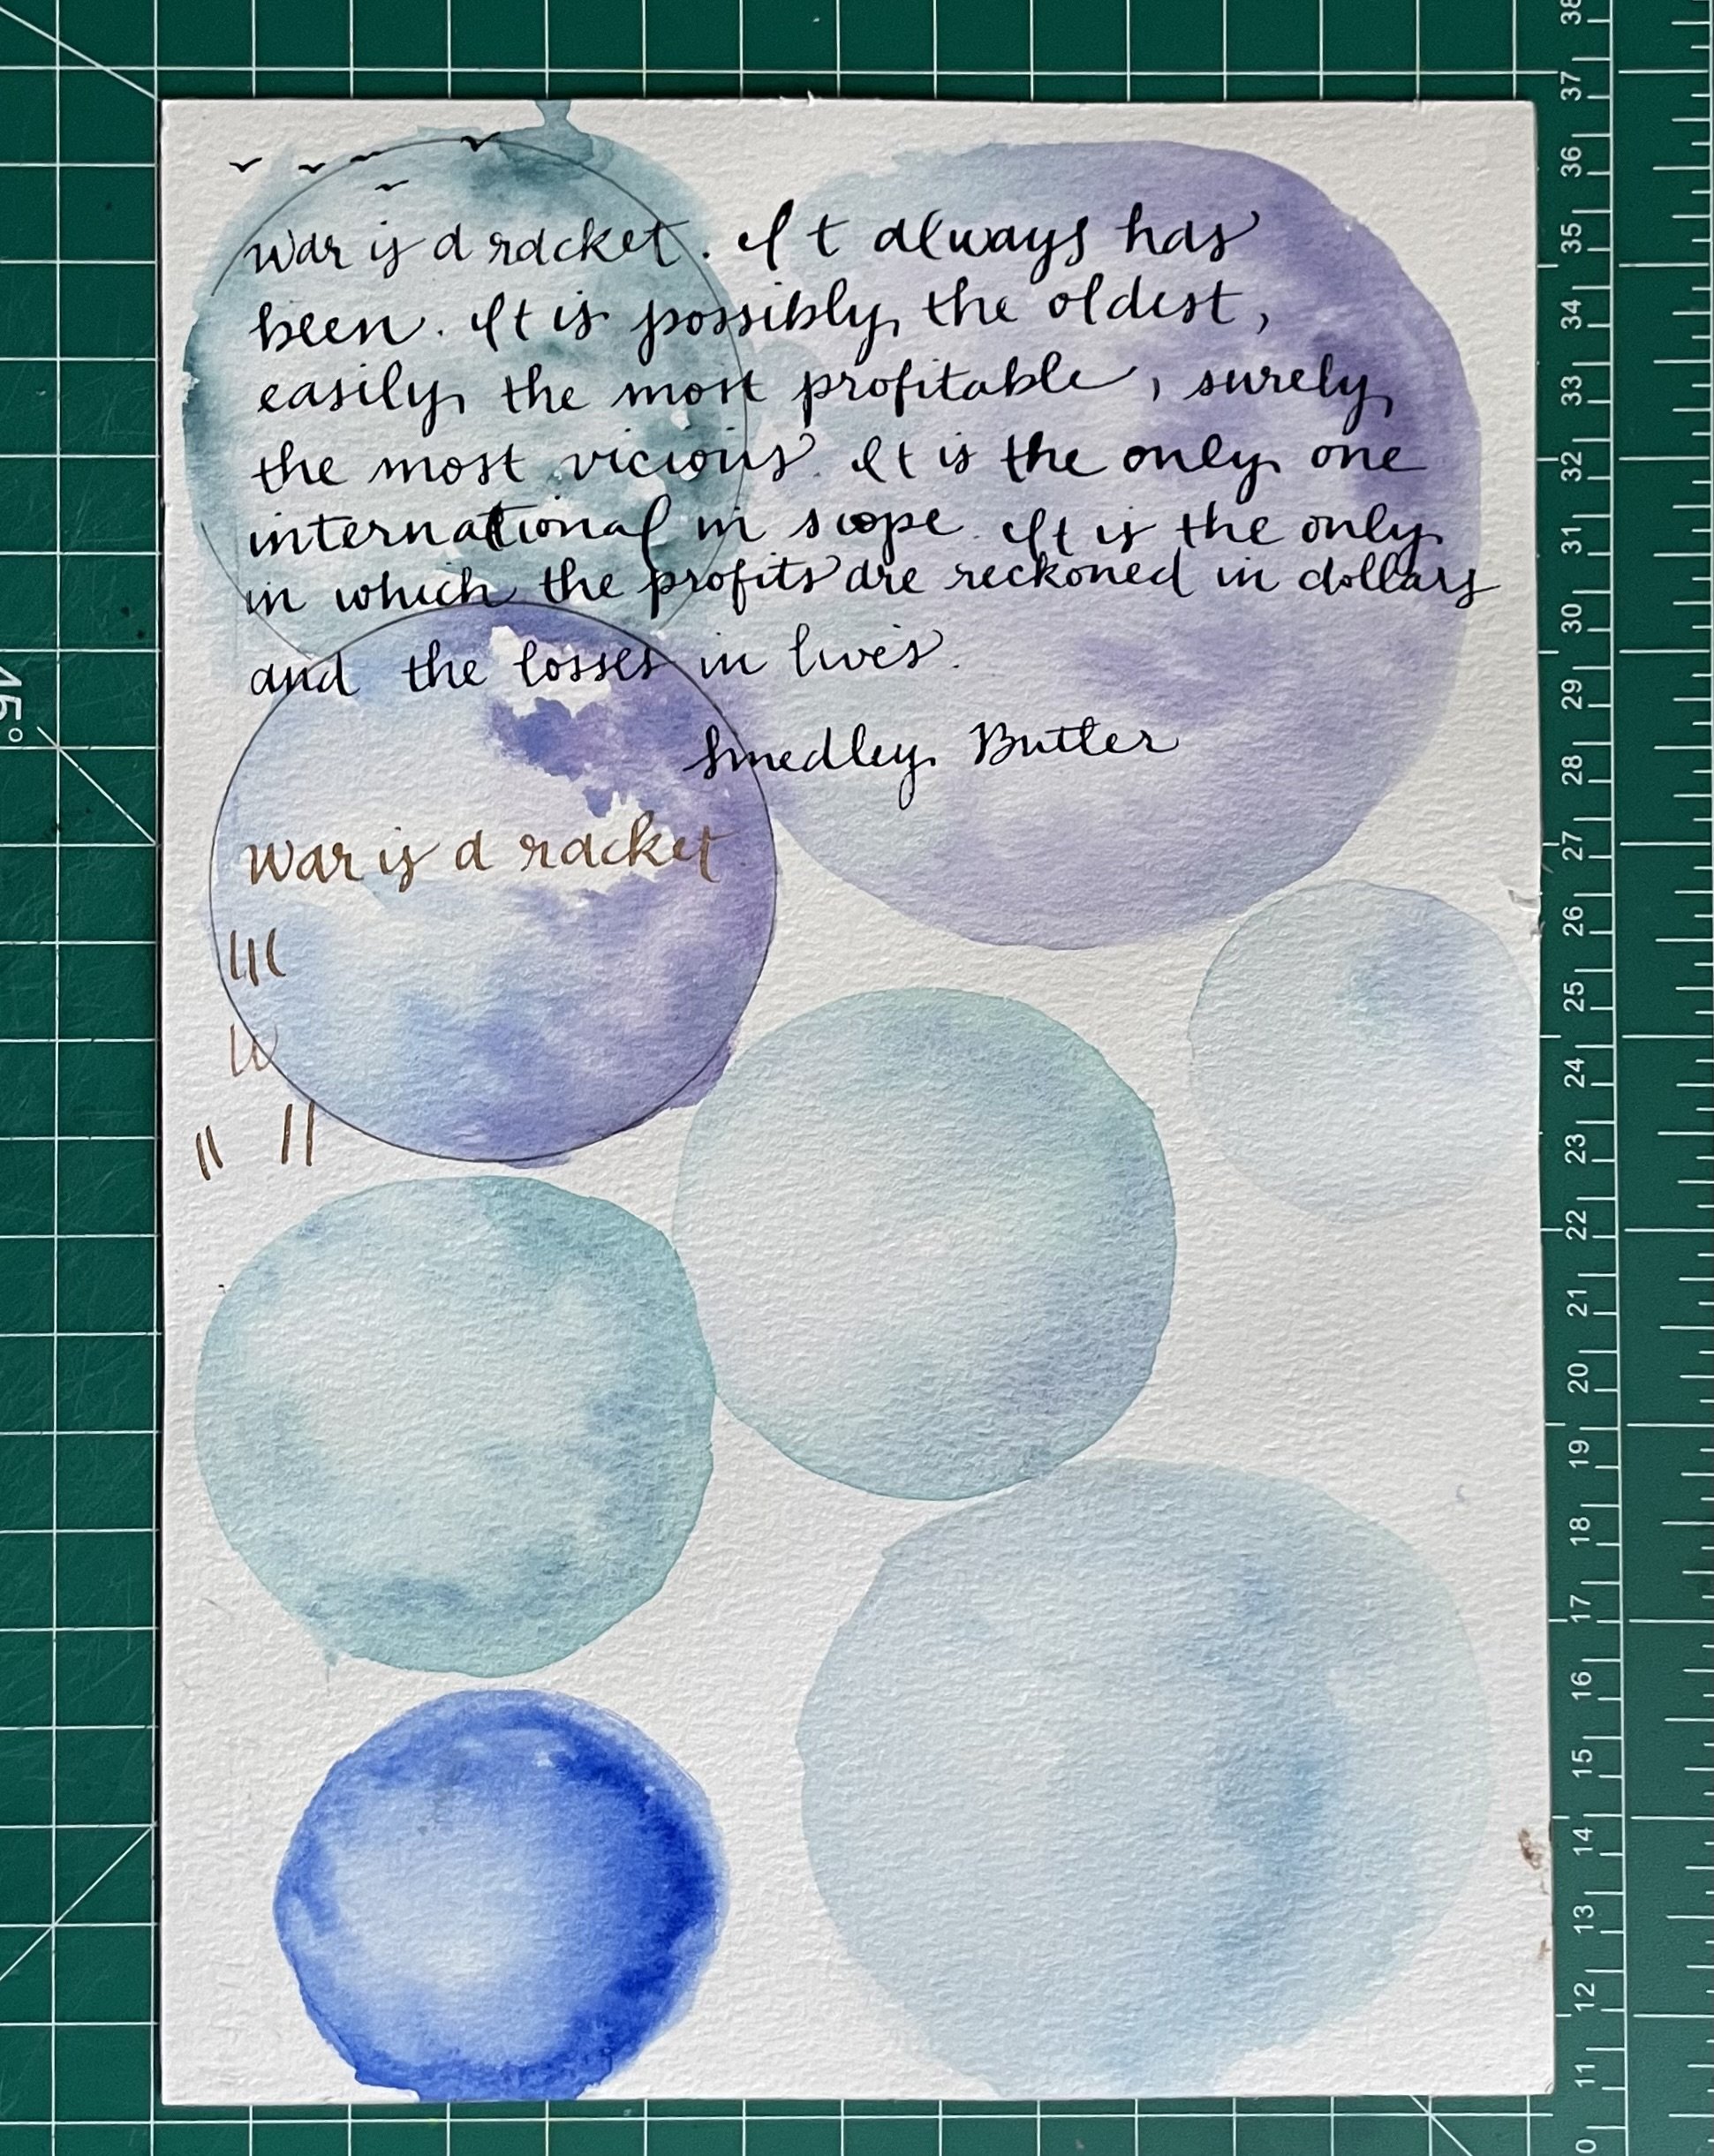 War is a racket. It always has
been. It is possibly the oldest,
easily the most profitable, surely
the most vicious. It is the only one
international in scope. It is the only
in which the profits are reckoned in dollars
and the losses in lives.
Smedley Butler
War is a racket
W
45°
38
37
36
35
34
33
32
31
30
29
28
27
26
25
24
23
22
21
20
19
18
17
16
15
14
13
12
11